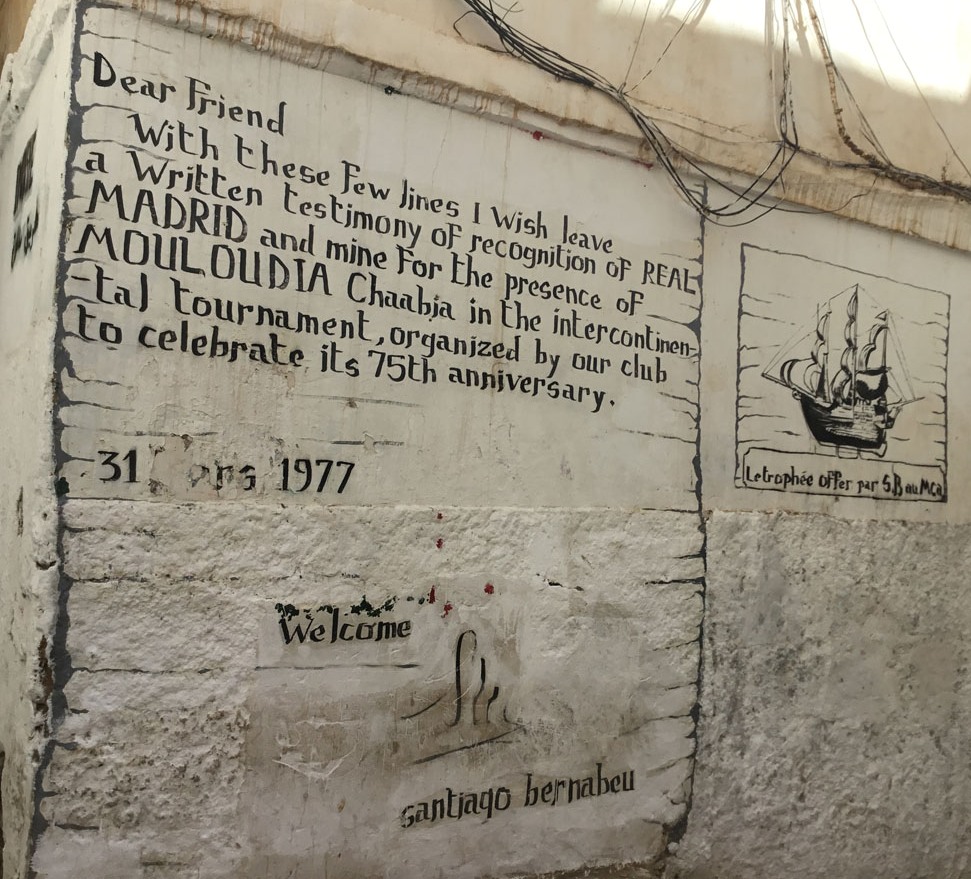 Dear Friend
With these Few lines I Wish leave
a Written testimony of recognition of REAL
MADRID and mine For the presence of
MOULOUDIA Chaabia in the intercontinen-
-tal tournament, organized by our club
to celebrate its 75th anniversary.
31 1977
Le trophée offer par S.B au MCA
Welcome
santiago bernabeu